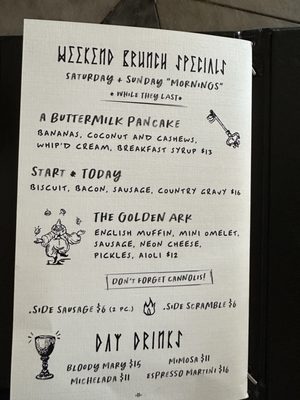 WEEKEND BRUNCH SPECIALS
SATURDAY + SUNDAY "MORNINGS"
* WHILE THEY LAST *
A BUTTERMILK PANCAKE
BANANAS, COCONUT AND CASHEWS,
WHIP'D CREAM, BREAKFAST SYRUP $13
START * TODAY
BISCUIT, BACON, SAUSAGE, COUNTRY GRAVY $16
THE GOLDEN ARK
ENGLISH MUFFIN, MINI OMELET,
SAUSAGE, NEON CHEESE,
PICKLES, AIOLI $12
DON'T FORGET CANNOLIS!
.SIDE SAUSAGE $6 (2 PC.) .SIDE SCRAMBLE $6
DAY DRINKS
BLOODY MARY $15 MIMOSA $11
MICHELADA $11 ESPRESSO MARTINI $16